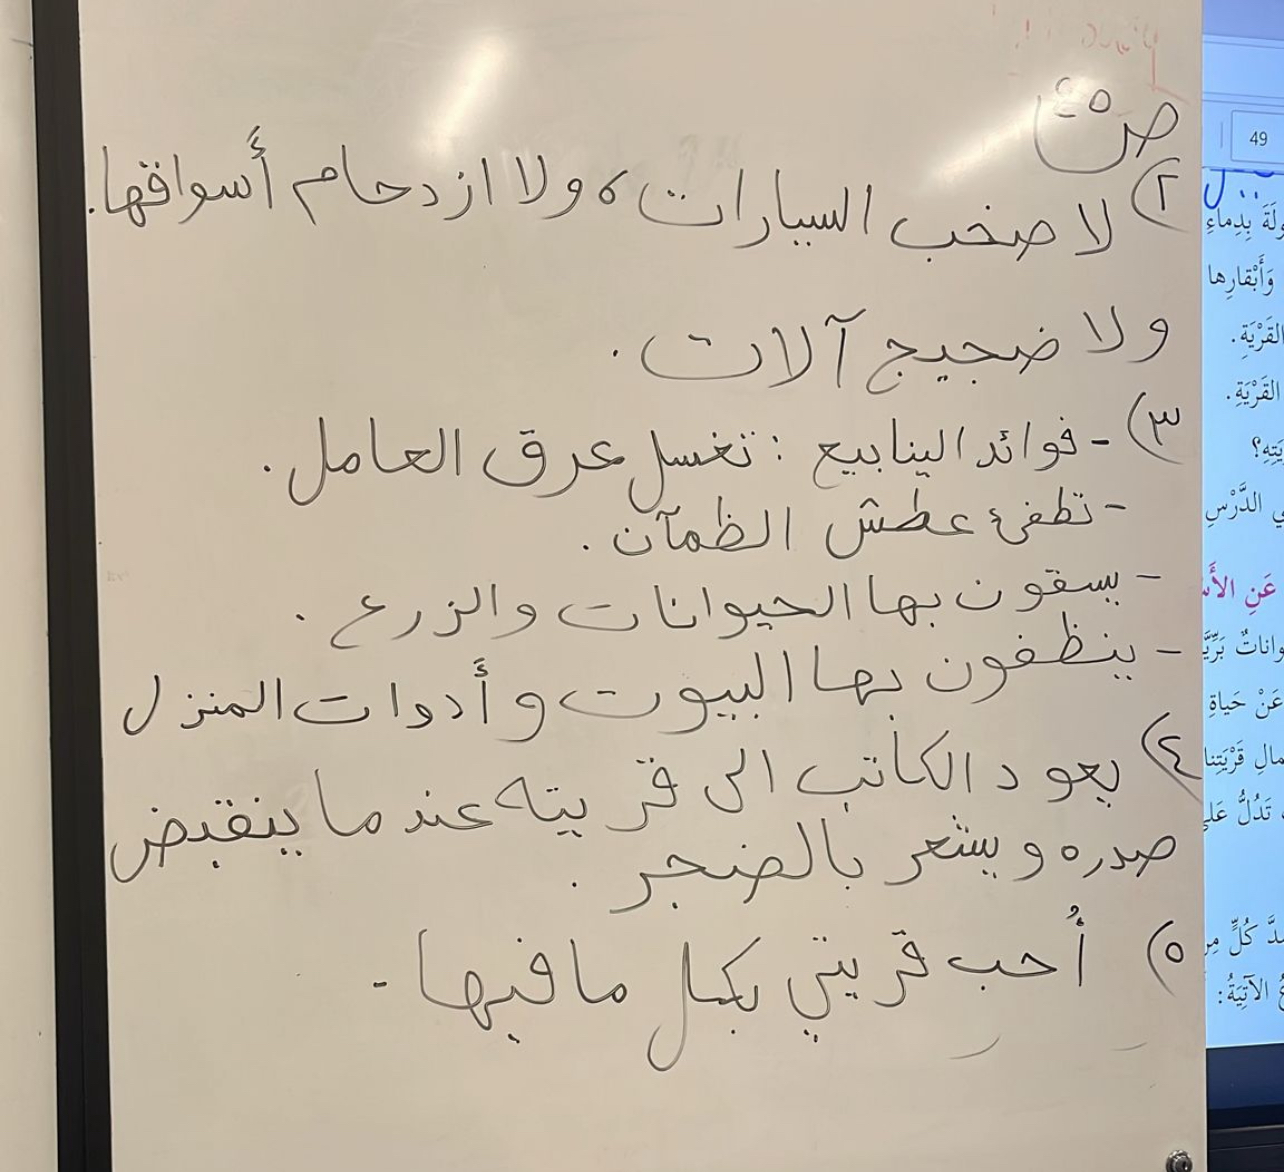 ٢) لا صخب السيارات، ولا ازدحام أسواقها.
ولا ضجيج آلات.
٣) - فوائد الينابيع : تغسل عرق العامل.
- تطفئ عطش الظمآن.
- يسقون بها الحيوانات والزرع.
- ينظفون بها البيوت وأدوات المنزل
٤) يعود الكاتب الى قريته عندما ينقبض
صدره ويشعر بالضجر.
٥) أُحب قريتي بكل ما فيها.
49
بِدِماءِ
وَأَبْقارِها
القَرْيَةِ.
القَرْيَةِ.
الدَّرْسِ
عَنِ
عَنْ حَياةِ
قَرْيَتِنا
تَدُلُّ
كُلٍّ
الآتِيَةُ: